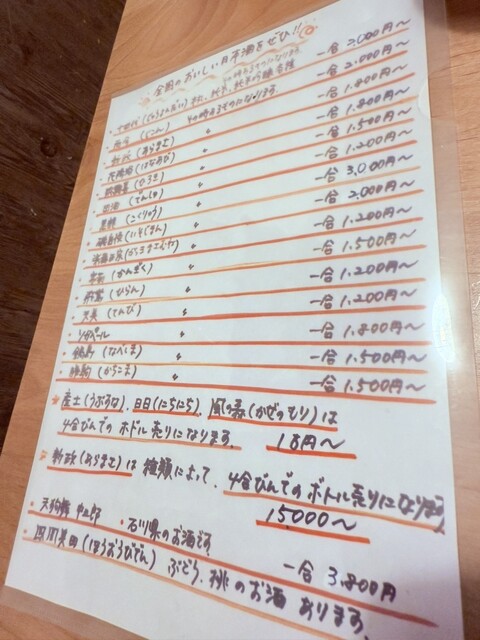 全国のおいしい日本酒をぜひ!!
十四代(じゅうよんだい) 一合 2,000円〜
その時あるものになります。
(じこん) その時あるものになります。 一合 2,000円〜
新政(あらまさ) 〃 一合 1,800円〜
花陽浴(はなあび) 〃 一合 1,800円〜
飛露喜(ひろき) 〃 一合 1,500円〜
田酒(でんしゅ) 〃 一合 1,200円〜
黒龍(こくりゅう) 〃 一合 3,000円〜
磯自慢(いそじまん) 〃 一合 2,000円〜
一合 1,200円〜
(かんぎく) 〃 一合 1,500円〜
(ひらん) 〃 一合 1,200円〜
天美(てんび) 〃 一合 1,200円〜
ソガペール 〃 一合 1,800円〜
鍋島(なべしま) 〃 一合 1,500円〜
(からこま) 〃 一合 1,500円〜
産土(うぶすな)、日日(にちにち)、風の森(かぜのもり)は
4合びんでのボトル売りになります。 18円〜
新政(あらまさ)は種類によって、4合びんでのボトル売りになります
15,000〜
天狗舞 中三郎 ・石川県のお酒です。 一合 3,800円
(ほうおうびでん) ぶどう、桃のお酒 あります。